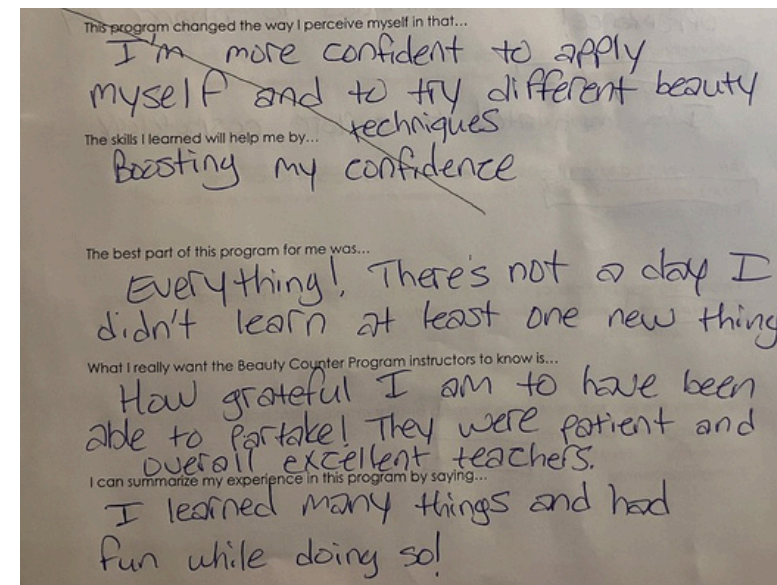 This program changed the way I perceive myself in that...
I'm more confident to apply
myself and to try different beauty
techniques
The skills I learned will help me by...
Boosting my confidence
The best part of this program for me was...
Everything! There's not a day I
didn't learn at least one new thing
What I really want the Beauty Counter Program instructors to know is...
How grateful I am to have been
able to partake! They were patient and
overall excellent teachers.
I can summarize my experience in this program by saying...
I learned many things and had
fun while doing so!